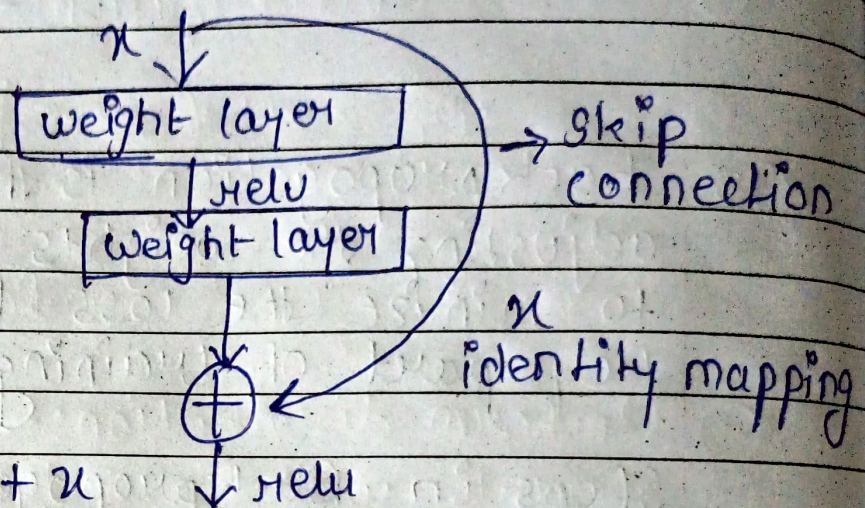 x
weight layer
→ skip
connection
relu
weight layer
x
identity mapping
+
+ x
relu